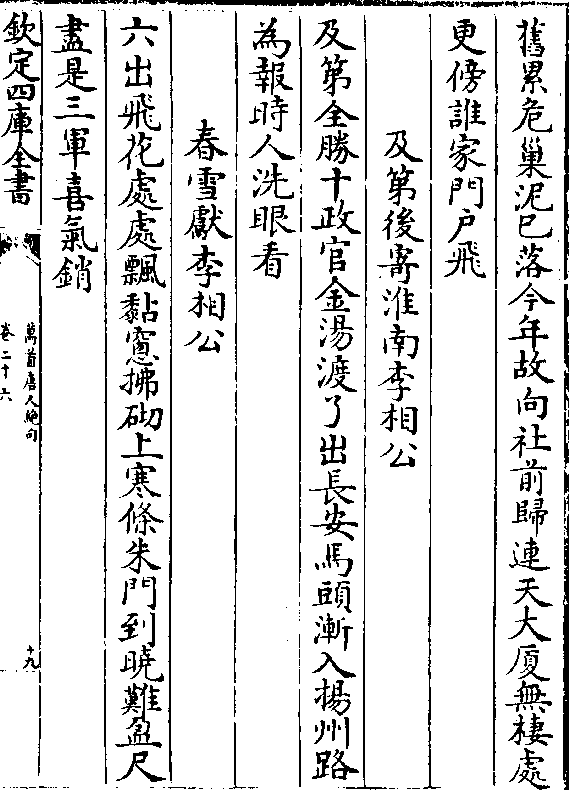 舊累危巢泥已落今年故向社前歸連天大厦無棲處
更傍誰家門户飛
及第後寄淮南李相公
及第全勝十政官金湯渡了出長安馬頭漸入揚州路
為報時人洗眼看
春雪獻李相公
六出飛花處處飄黏窻拂砌上寒條朱門到曉難盈尺
盡是三軍喜氣銷
欽定四庫全書
萬首唐人絶句
卷二十六
十九